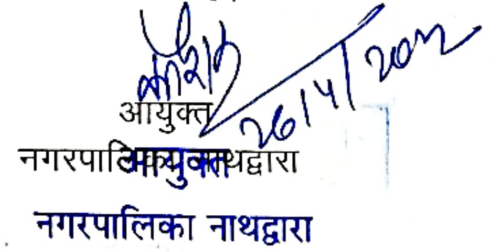 26/4/2022
आयुक्त
नगरपालिका नाथद्वारा
आयुक्त
नगरपालिका नाथद्वारा